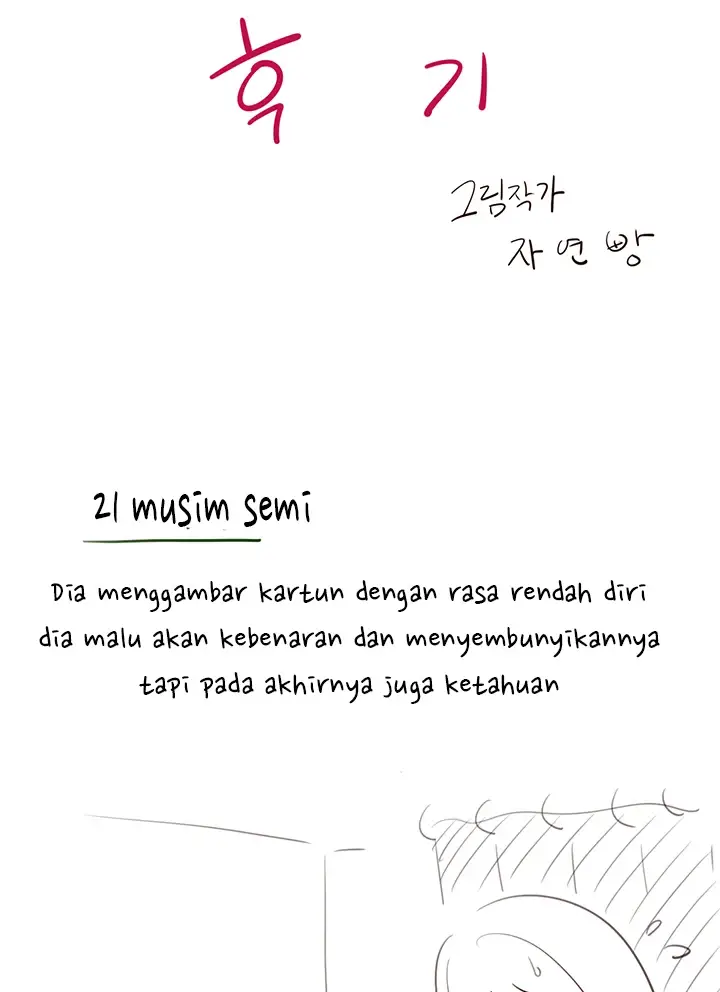 후 기
그림작가
자연빵
21 musim semi
Dia menggambar kartun dengan rasa rendah diri
dia malu akan kebenaran dan menyembunyikannya
tapi pada akhirnya juga ketahuan